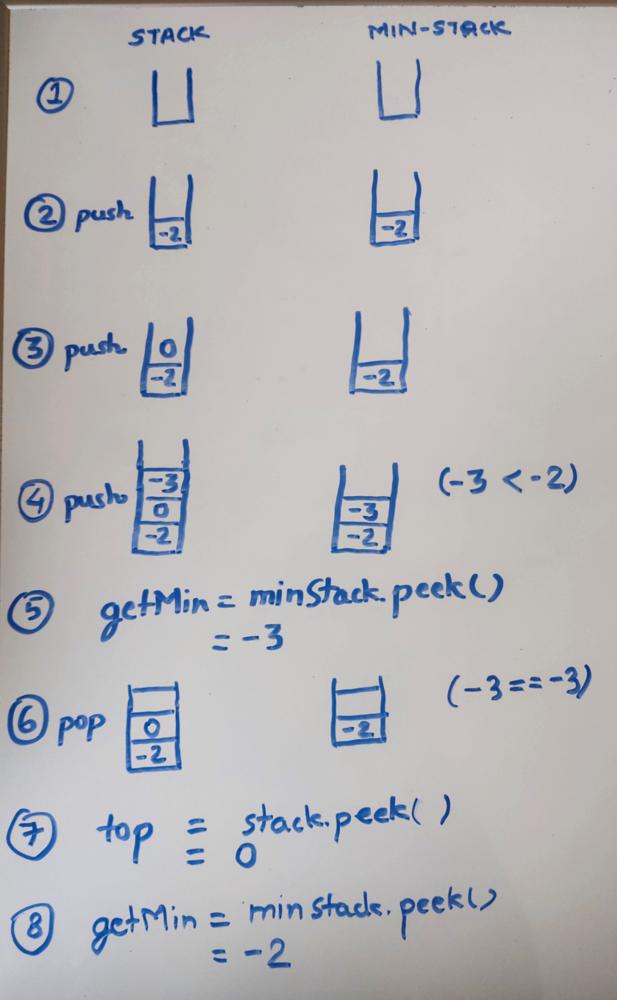 STACK MIN-STACK
①
② push -2 -2
③ push 0
-2 -2
④ push -3
0 -3 (-3 < -2)
-2 -2
⑤ getMin = minStack.peek()
= -3
⑥ pop 0 -2 (-3 == -3)
-2
⑦ top = stack.peek( )
= 0
⑧ getMin = minstack.peek()
= -2